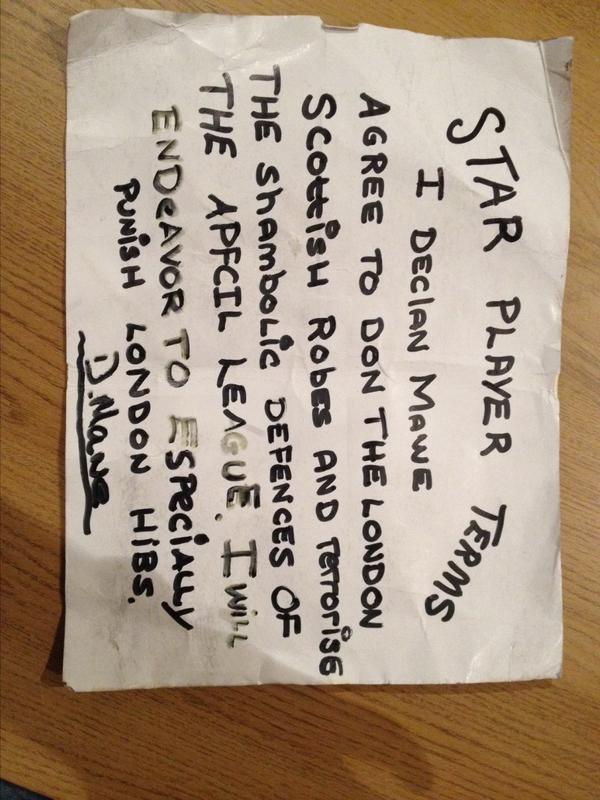 STAR PLAYER TERMS
I DEClAN MAWE
AGREE TO DON THE LONDON
SCOttiSH RobES AND tERrORiSE
THE ShambOLiC DEFENCES OF
THE APFCIL LEAGUE. I WiLL
ENDEAVOR TO ESPECiALLY
PUNiSH LONDON HiBS.
D. Mawe